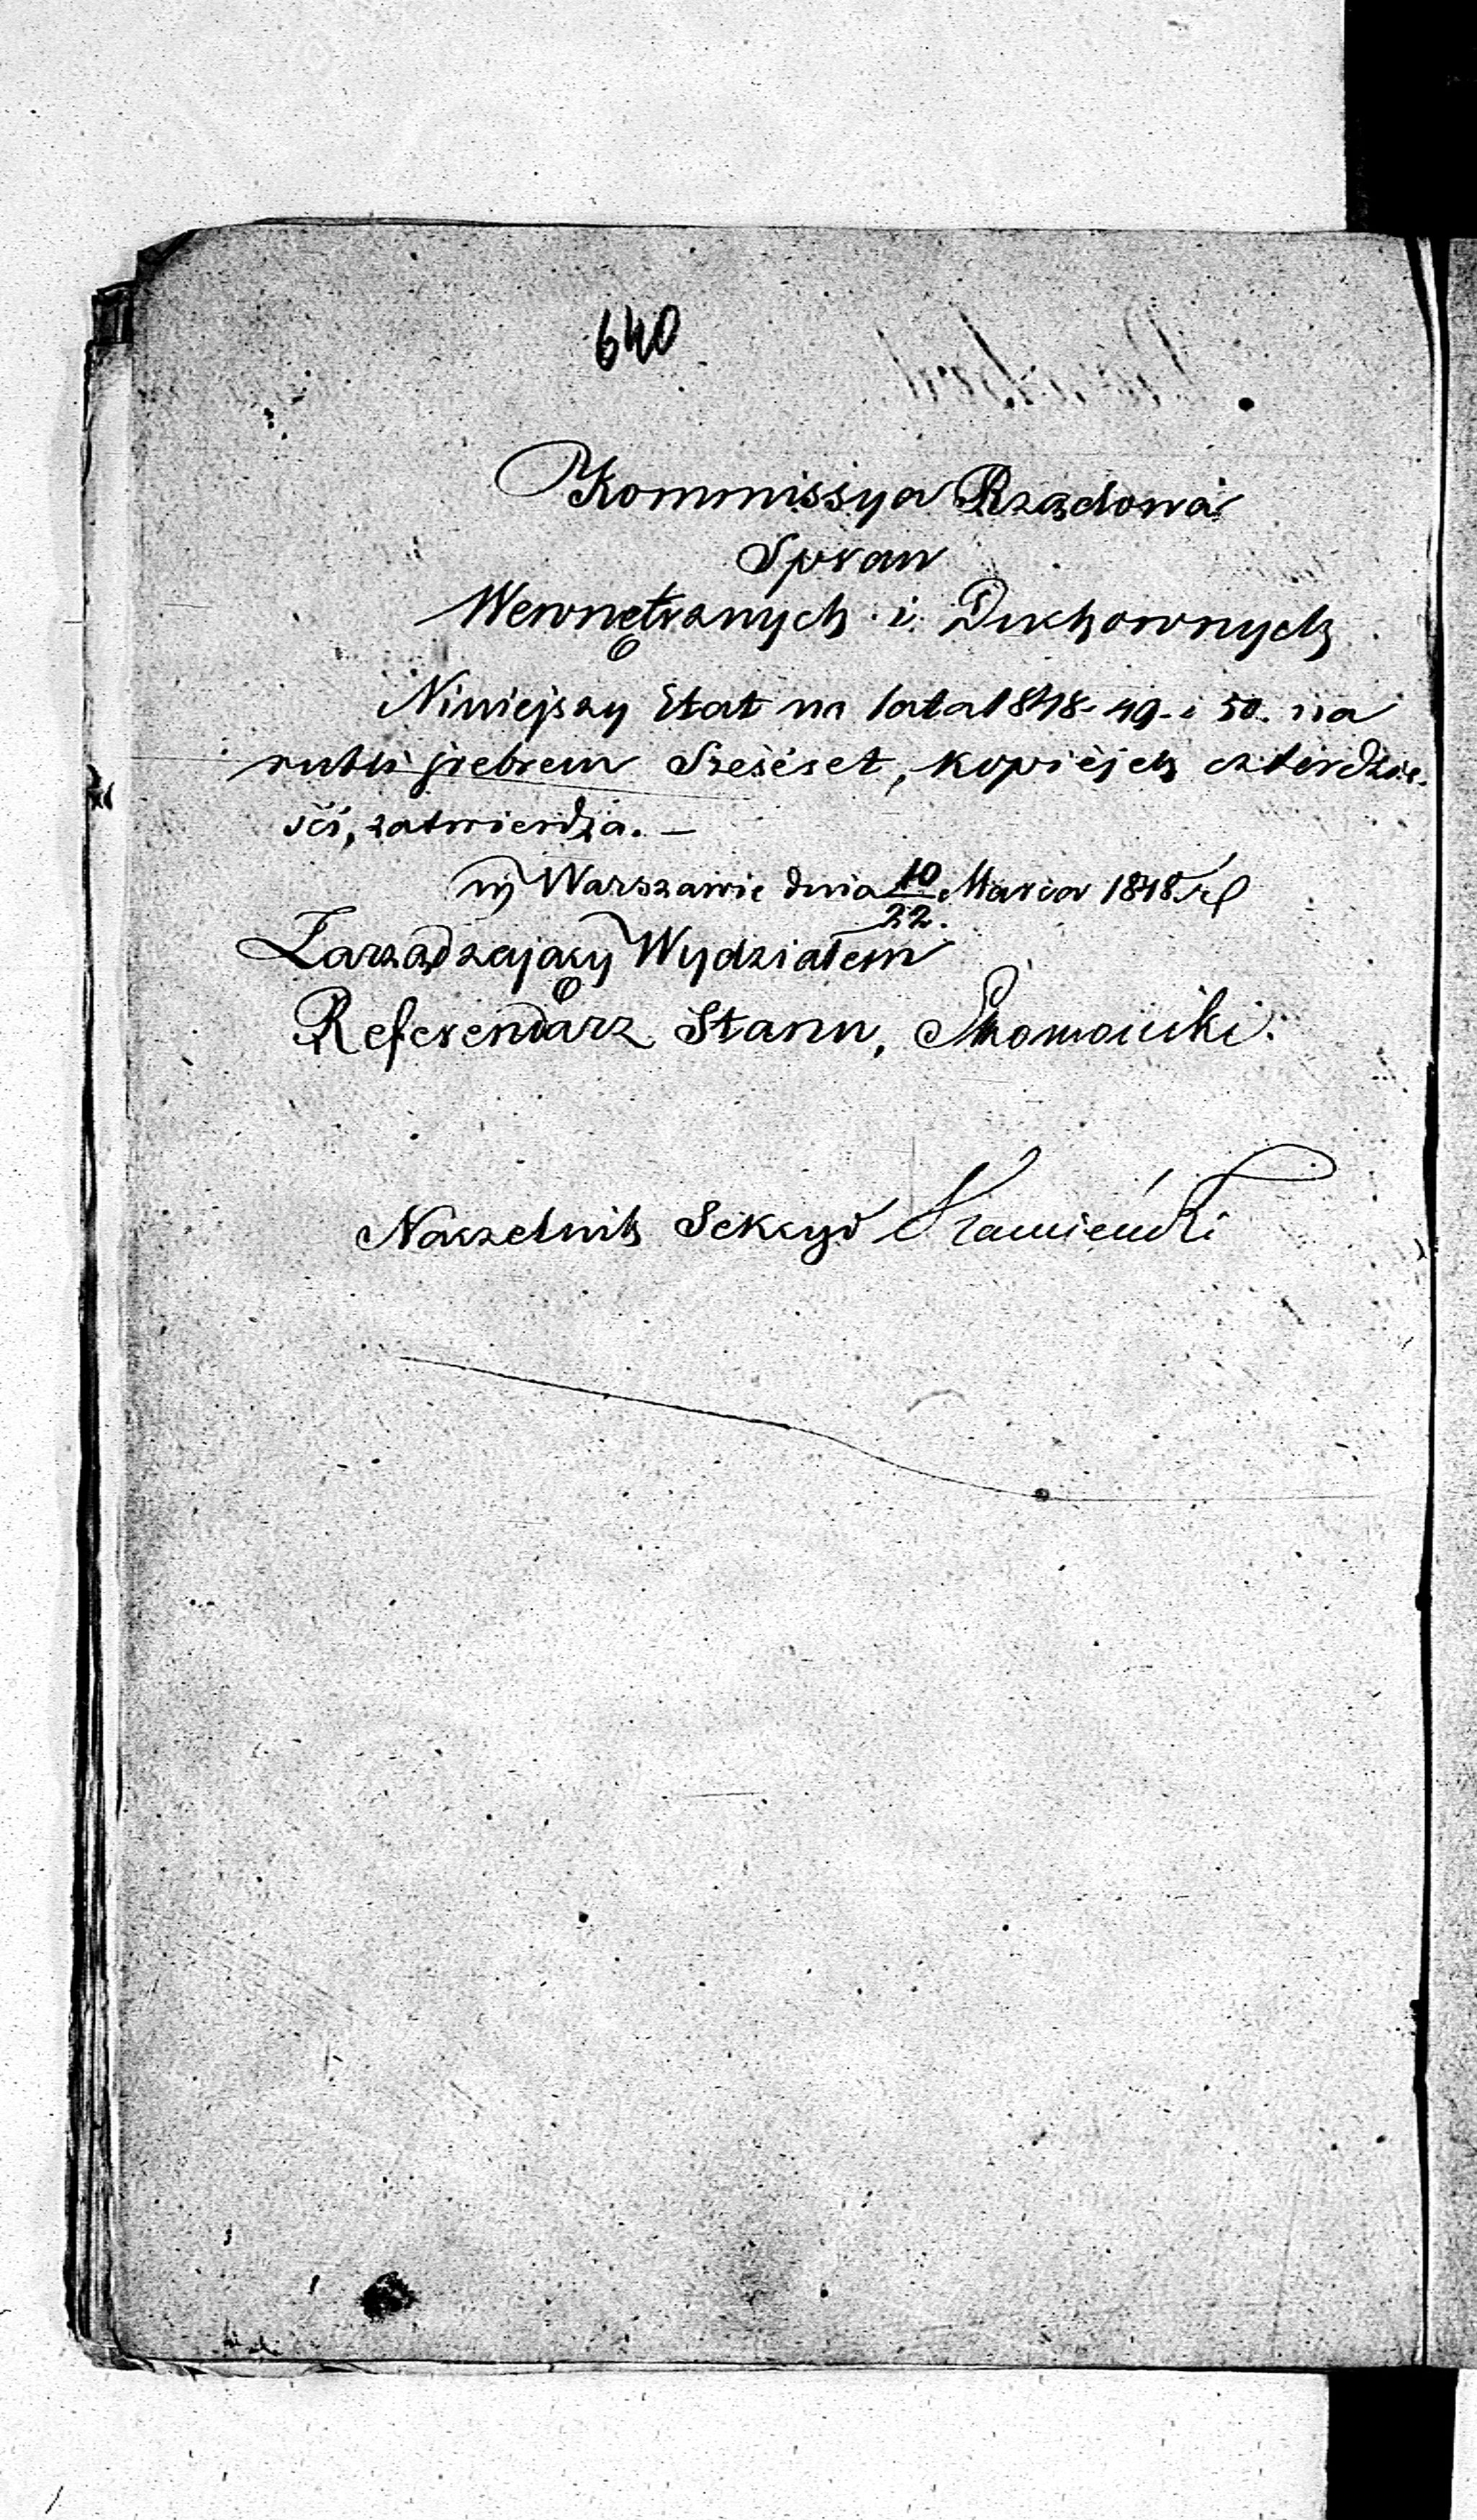 640
Kommissya Rządowa
Spraw
Wewnętrznych i Duchownych
Niniejszy Etat na lata 1848-49-i 50. na
rubli srebrem Sześćset, kopiejek czterdzie-
ści, zatwierdza. —
w Warszawie dnia 10/22. Marca 1848 r.
Zarządzający Wydziałem
Referendarz Stanu,
Naczelnik Sekcyi Kamieński